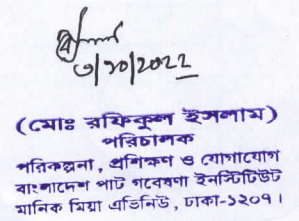 ৩/১০/2022
(মোঃ রফিকুল ইসলাম)
পরিচালক
পরিকল্পনা, প্রশিক্ষণ ও যোগাযোগ
বাংলাদেশ পাট গবেষণা ইনস্টিটিউট
মানিক মিয়া এভিনিউ, ঢাকা-১২০৭।